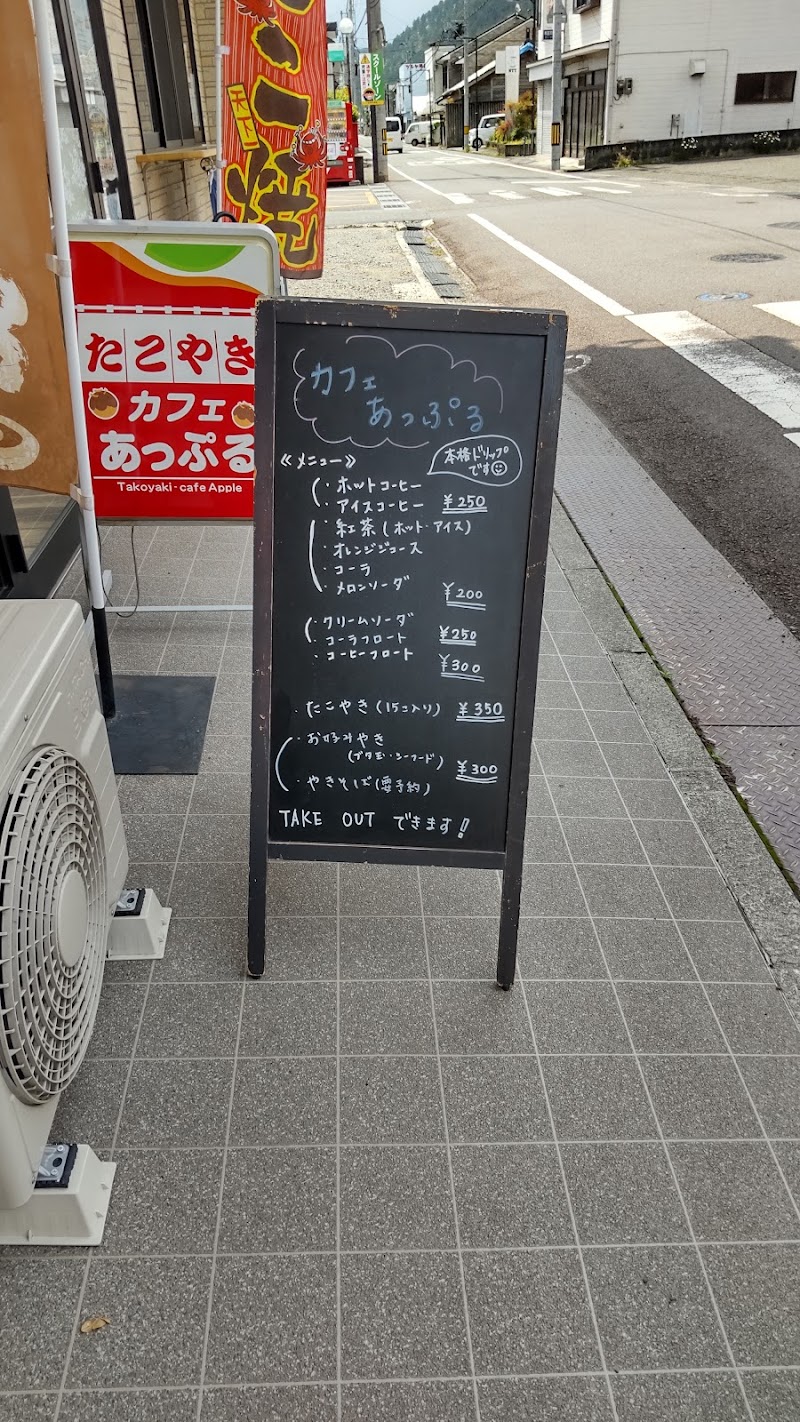 たこ焼
たこやき
カフェ
あっぷる
Takoyaki-cafe Apple
カフェ
あっぷる
本格ドリップ
です
《メニュー》
・ホットコーヒー
・アイスコーヒー ¥250
・紅茶(ホット・アイス)
・オレンジジュース
・コーラ
・メロンソーダ ¥200
・クリームソーダ
・コーラフロート ¥250
・コーヒーフロート ¥300
・たこやき(15コ入り) ¥350
・お好みやき
(ブタ玉・シーフード) ¥300
・やきそば(要予約)
TAKE OUT できます!